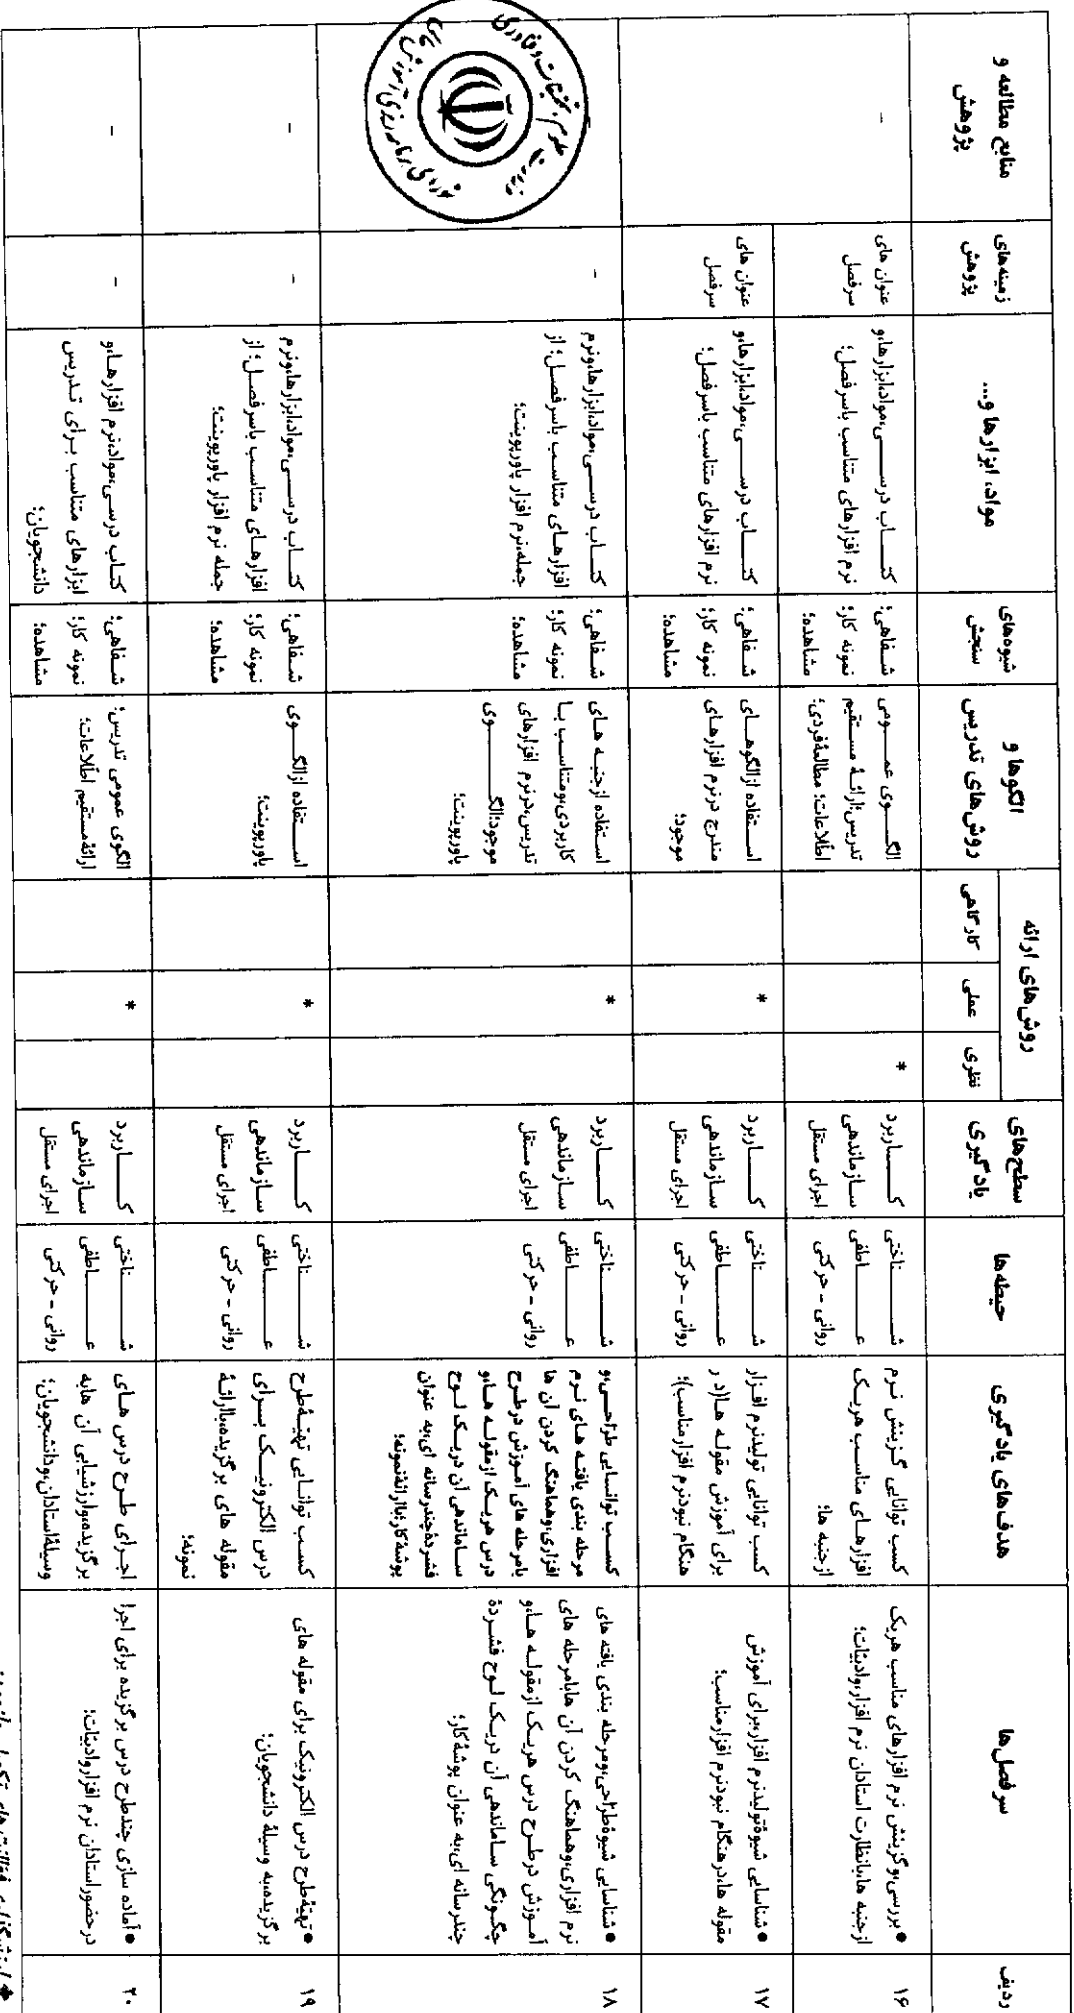 ردیف
سرفصل‌ها
هدف‌های یادگیری
حیطه‌ها
سطح‌های
یادگیری
روش‌های ارائه
نظری
عملی
کارگاهی
الگوها و
روش‌های تدریس
شیوه‌های
سنجش
مواد، ابزارها و...
زمینه‌های
پژوهش
منابع مطالعه و
پژوهش
۱۶
● بررسی،وگزینش نرم افزارهای مناسب هریک
ازجنبه ها،بانظارت استادان نرم افزار،وادبیّات؛
کسب توانایی گزینش نرم
افزارهای مناسب هریک
ازجنبه ها؛
شناختی
عاطفی
روانی - حرکتی
کاربرد
سازماندهی
اجرای مستقل
*
الگوی عمومی
تدریس؛ارائۀ مستقیم
اطّلاعات؛ مطالعۀفردی؛
شفاهی؛
نمونه کار؛
مشاهده؛
کتاب درسی،مواد،ابزارها،و
نرم افزارهای متناسب باسرفصل؛
عنوان های
سرفصل
-
۱۷
● شناسایی شیوۀتولیدنرم افزار،برای آموزش
مقوله ها،درهنگام نبودنرم افزارمناسب؛
کسب توانایی تولیدنرم افزار
برای آموزش مقوله ها(در
هنگام نبودنرم افزارمناسب)؛
شناختی
عاطفی
روانی - حرکتی
کاربرد
سازماندهی
اجرای مستقل
*
استفاده ازالگوهای
مندرج درنرم افزارهای
موجود؛
شفاهی؛
نمونه کار؛
مشاهده؛
کتاب درسی،مواد،ابزارها،و
نرم افزارهای متناسب باسرفصل؛
عنوان های
سرفصل
۱۸
● شناسایی شیوۀطراحی،ومرحله بندی یافته های
نرم افزاری،وهماهنگ کردن آن هابامرحله های
آموزش درطرح درس هریک ازمقوله ها،و
چگونگی ساماندهی آن دریک لوح فشردۀ
چندرسانه ای،به عنوان پوشۀکار؛
کسب توانایی طراحی،و
مرحله بندی یافته های نرم
افزاری،وهماهنگ کردن آن ها
بامرحله های آموزش درطرح
درس هریک ازمقوله ها،و
ساماندهی آن دریک لوح
فشردۀچندرسانه ای،به عنوان
پوشۀکار؛باارائۀنمونه؛
شناختی
عاطفی
روانی - حرکتی
کاربرد
سازماندهی
اجرای مستقل
*
استفاده ازجنبه های
کاربردی،ومتناسب با
تدریس،درنرم افزارهای
موجود؛الگوی
پاورپوینت؛
شفاهی؛
نمونه کار؛
مشاهده؛
کتاب درسی،مواد،ابزارها،ونرم
افزارهای متناسب باسرفصل؛ از
جمله،نرم افزار پاورپوینت؛
-
۱۹
● تهیّۀطرح درس الکترونیک برای مقوله های
برگزیده،به وسیلۀ دانشجویان؛
کسب توانایی تهیّۀطرح
درس الکترونیک برای
مقوله های برگزیده،باارائۀ
نمونه؛
شناختی
عاطفی
روانی - حرکتی
کاربرد
سازماندهی
اجرای مستقل
*
استفاده ازالگوی
پاورپوینت؛
شفاهی؛
نمونه کار؛
مشاهده؛
کتاب درسی،مواد،ابزارها،ونرم
افزارهای متناسب باسرفصل؛ از
جمله نرم افزار پاورپوینت؛
-
-
۲۰
● آماده سازی چندطرح درس برگزیده برای اجرا
درحضوراستادان نرم افزار،وادبیّات؛
اجرای طرح درس های
برگزیده،وارزشیابی آن هابه
وسیلۀاستادان،ودانشجویان؛
شناختی
عاطفی
روانی - حرکتی
کاربرد
سازماندهی
اجرای مستقل
*
الگوی عمومی تدریس؛
ارائۀمستقیم اطّلاعات؛
شفاهی؛
نمونه کار؛
مشاهده؛
کتاب درسی،مواد،نرم افزارها،و
ابزارهای متناسب برای تدریس
دانشجویان؛
-
-